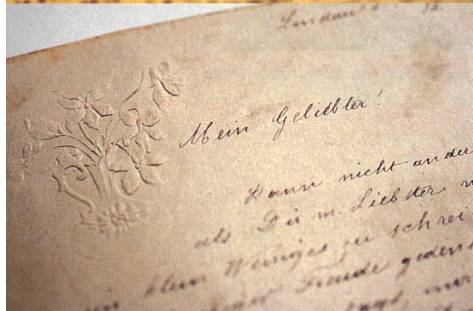 Lindau
Mein Geliebter!
Kann nicht ander
als Dir m. Liebster
ein klein Weniges zu schrei
Freude geden